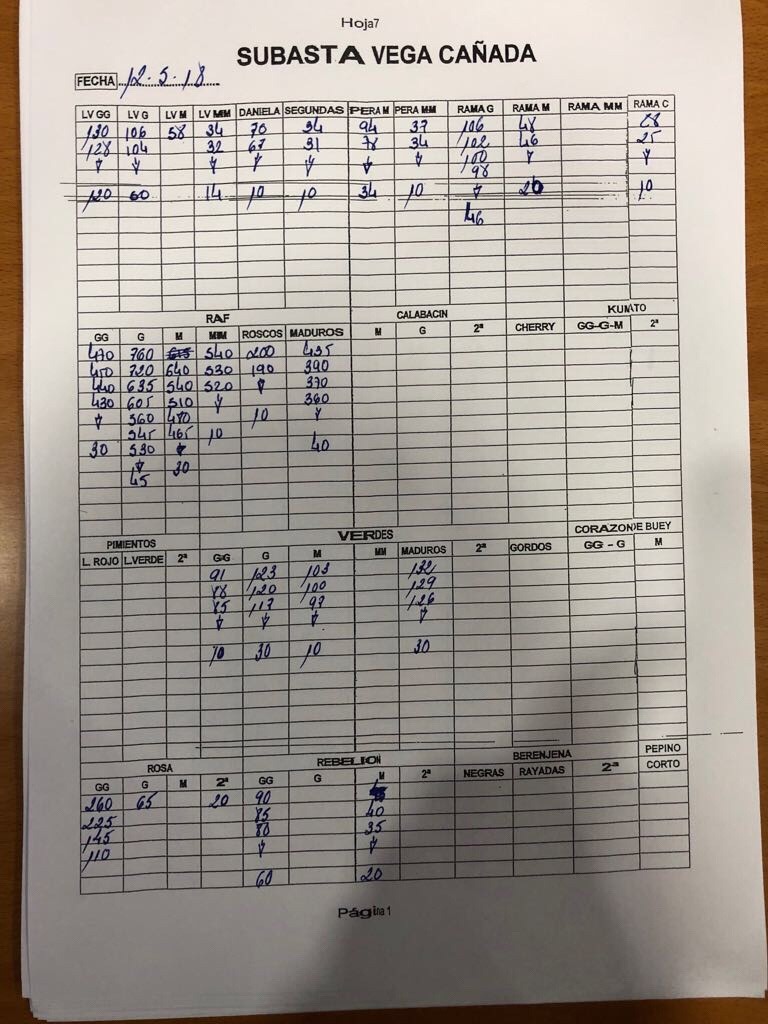 Hoja7
SUBASTA VEGA CAÑADA
FECHA 12-5-18
LV GG LV G LV M LV MM DANIELA SEGUNDAS PERA M PERA MM RAMA G RAMA M RAMA MM RAMA C
130 106 58 34 70 34 94 37 106 48 28
128 104 32 67 31 78 34 102 46 25
100
98
120 60 14 10 10 34 10 20 10
46
RAF CALABACIN KUMATO
GG G M MM ROSCOS MADUROS M G 2ª CHERRY GG-G-M 2ª
470 760 540 200 435
450 720 640 530 190 390
440 635 540 520 370
430 605 510 360
560 470 10
545 465 10
30 530 40
30
45
PIMIENTOS VERDES CORAZON DE BUEY
L. ROJO L.VERDE 2ª GG G M MM MADUROS 2ª GORDOS GG - G M
91 123 103 132
88 120 100 129
85 117 97 126
70 30 10 30
ROSA REBELION BERENJENA PEPINO
GG G M 2ª GG G M 2ª NEGRAS RAYADAS 2ª CORTO
260 65 20 90
225 85 40
145 80 35
110
60 20
Página 1